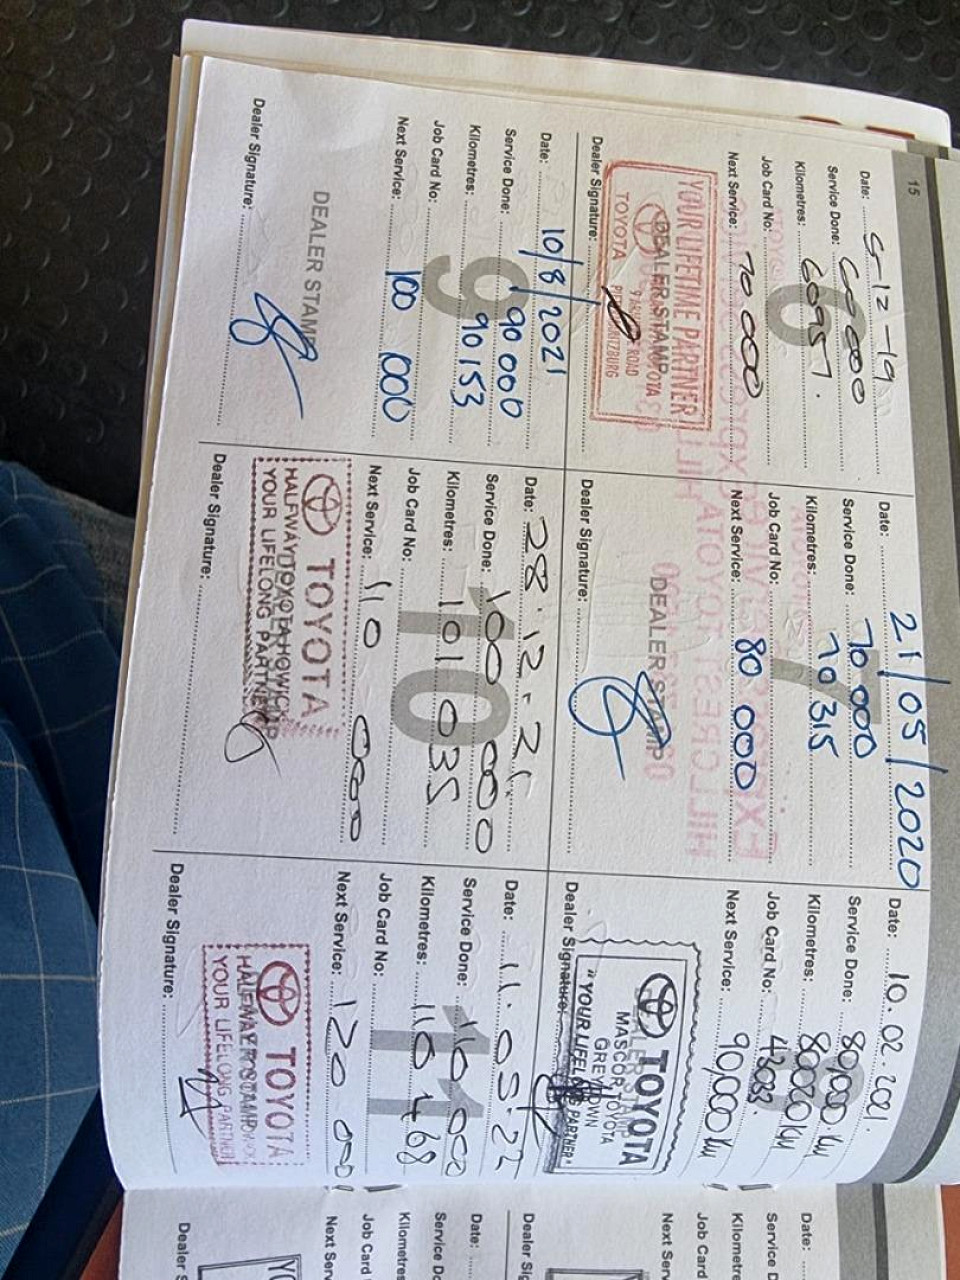 15
6
Date: 5-12-19
Service Done: 60 000
Kilometres: 60957.
Job Card No:
Next Service: 70 000
YOUR LIFETIME PARTNER
DEALER STAMP
TOYOTA
Dealer Signature:
7
Date: 21/05/2020
Service Done: 70 000
Kilometres: 70315
Job Card No:
Next Service: 80 000
DEALER STAMP
Dealer Signature:
8
Date: 10.02.2021.
Service Done: 80,000 Km
Kilometres: 80020 Km
Job Card No: 4303.
Next Service: 90,000 Km
TOYOTA
DEALER STAMP
MASCOR TOYOTA
GREYTOWN
"YOUR LIFELONG PARTNER"
Dealer Signature:
9
Date: 10/8/2021
Service Done: 90 000
Kilometres: 90153
Job Card No:
Next Service: 100 000
DEALER STAMP
Dealer Signature:
10
Date: 28.12.21.
Service Done: 100 000
Kilometres: 101 035
Job Card No:
Next Service: 110 000
TOYOTA
DEALER STAMP
HALFWAY TOYOTA HOWICK
YOUR LIFELONG PARTNER
Dealer Signature:
11
Date: 11.05.22
Service Done: 110 000
Kilometres: 110 468
Job Card No:
Next Service: 120 000
TOYOTA
DEALER STAMP
YOUR LIFELONG PARTNER
Dealer Signature:
Date:
Service D
Kilometre
Job Card
Next Serv
Dealer Sig
Date:
Service Do
Kilometres
Job Card
Next Serv
YO
Dealer S